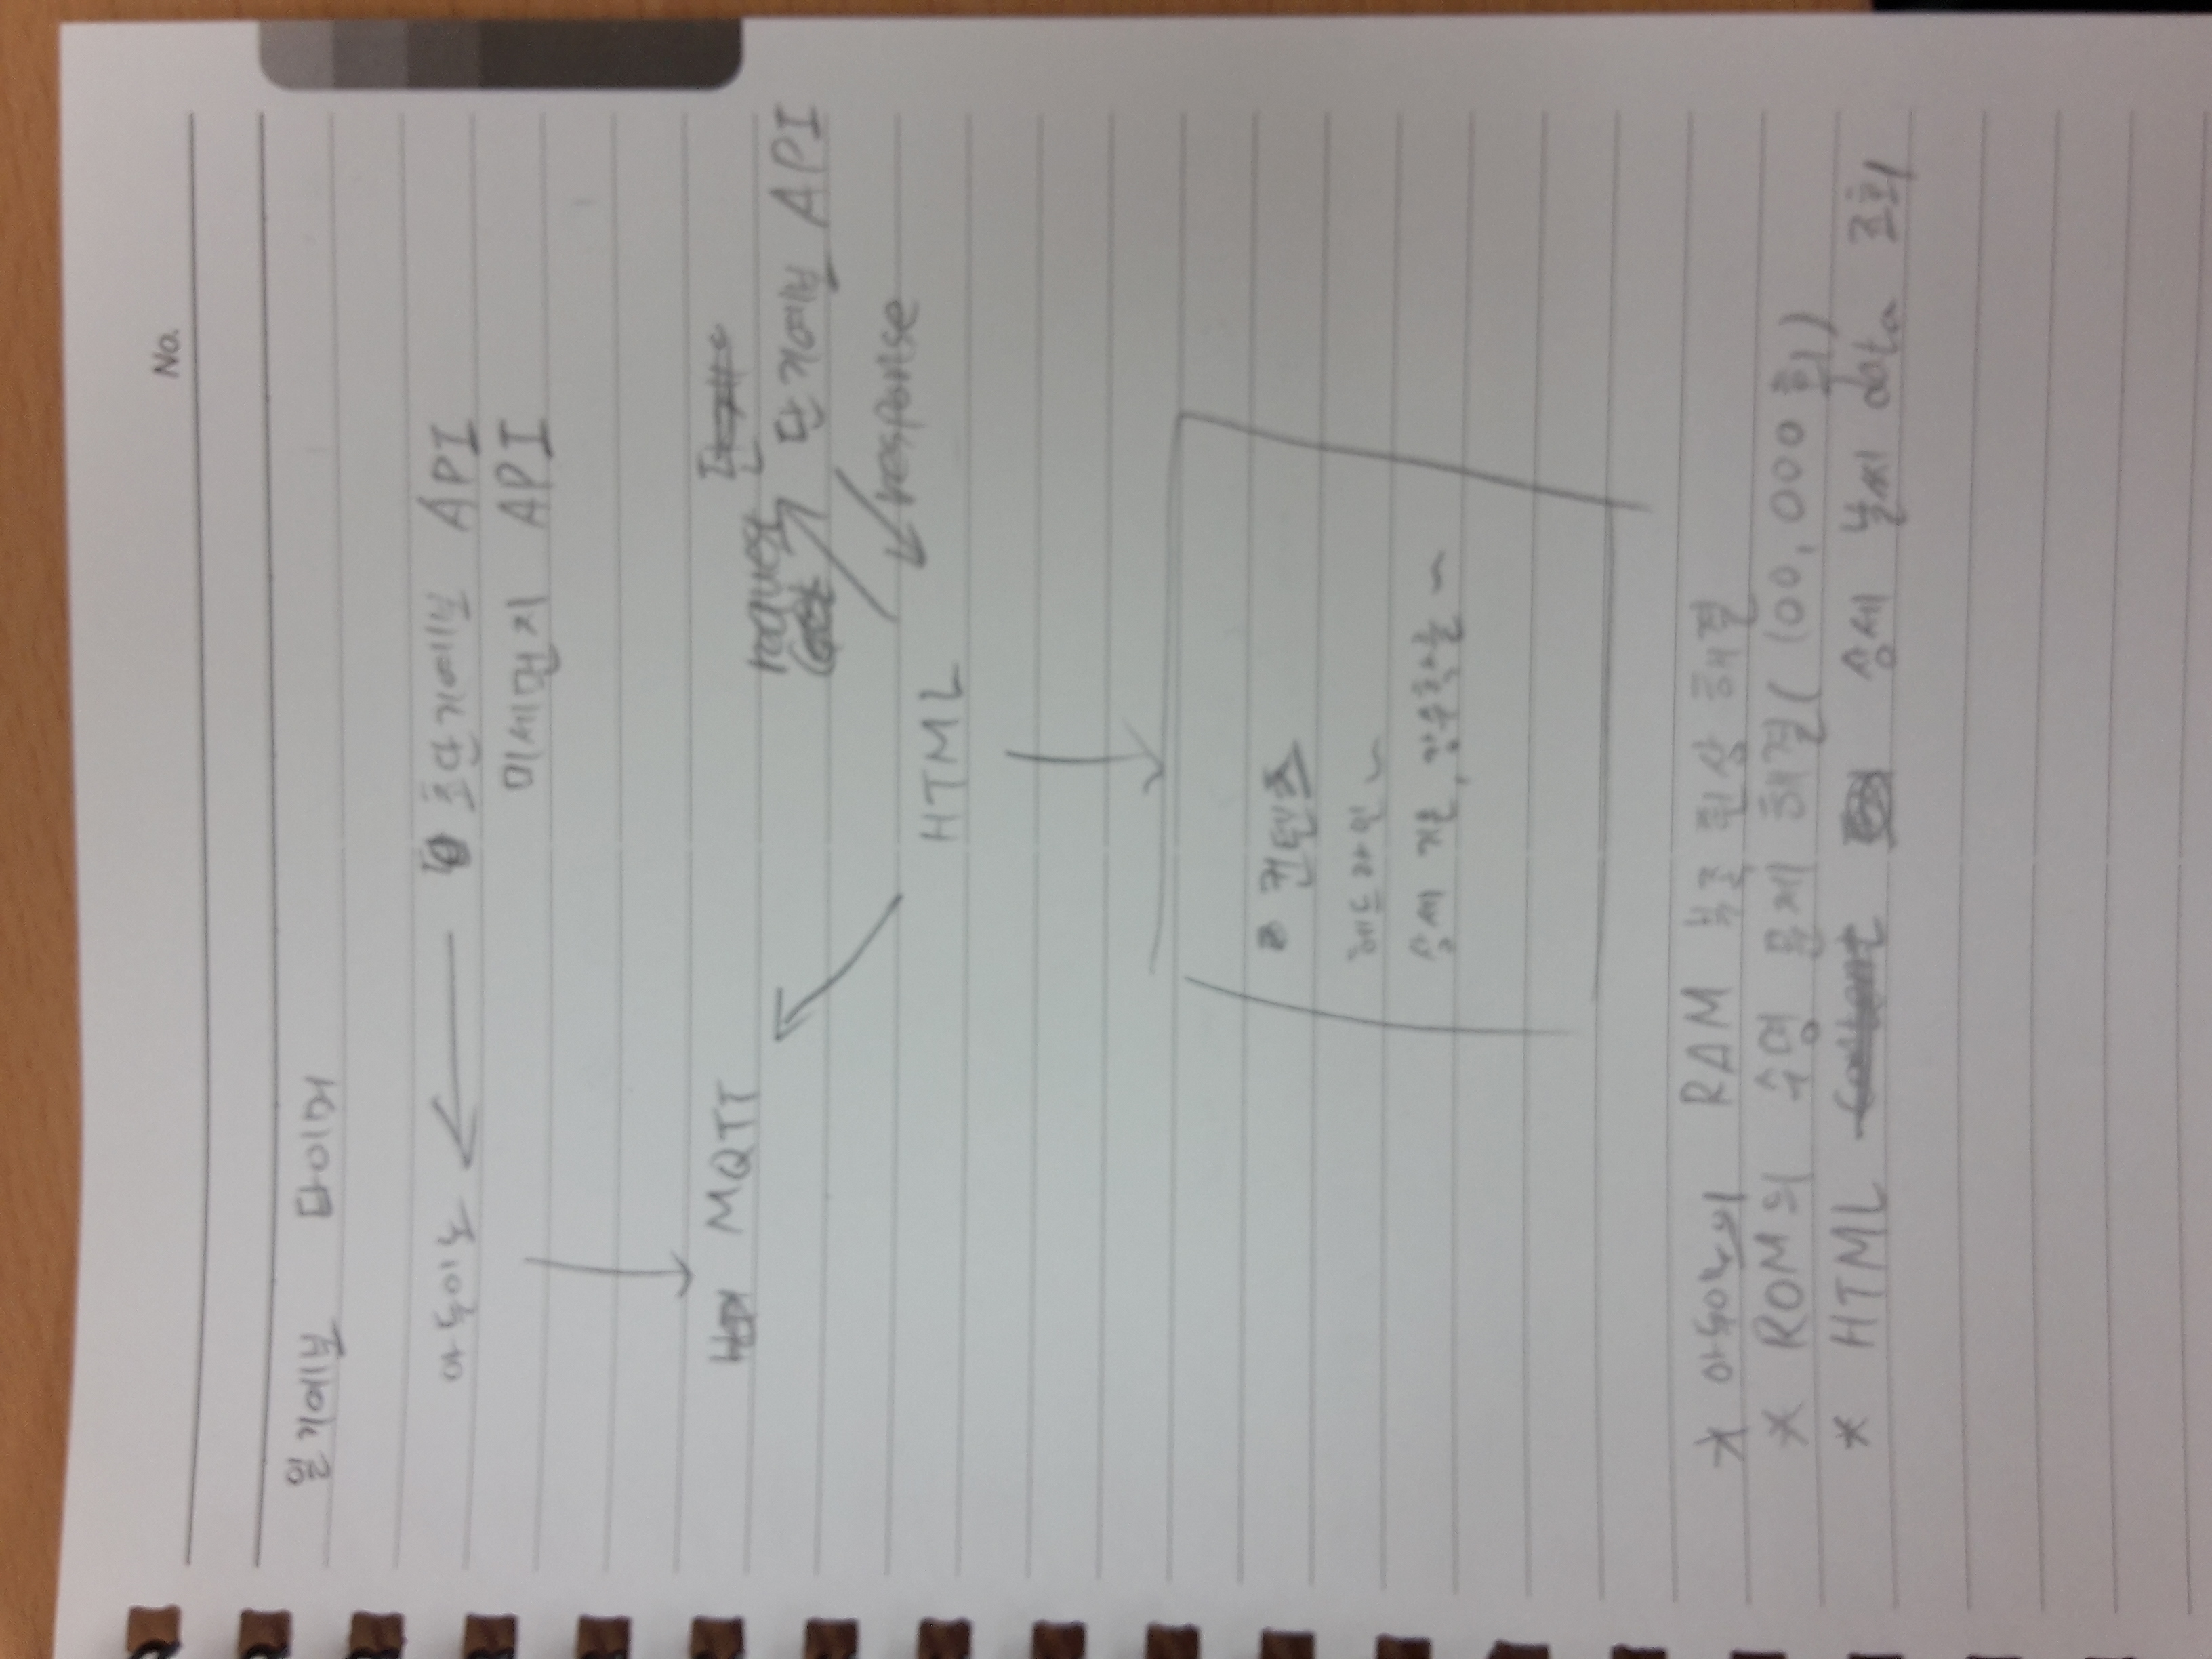 No.
일기예보 타이머
아두이노 초단기예보 API
미세먼지 API
MQTT
request 단기예보 API
response
HTML
컨텐츠
헤드라인 ~
상세 기온, 강수확률 ~
* 아두이노의 RAM 부족 현상 해결
* ROM의 수명 문제 해결( 100,000회)
* HTML 상세 날씨 data 조회